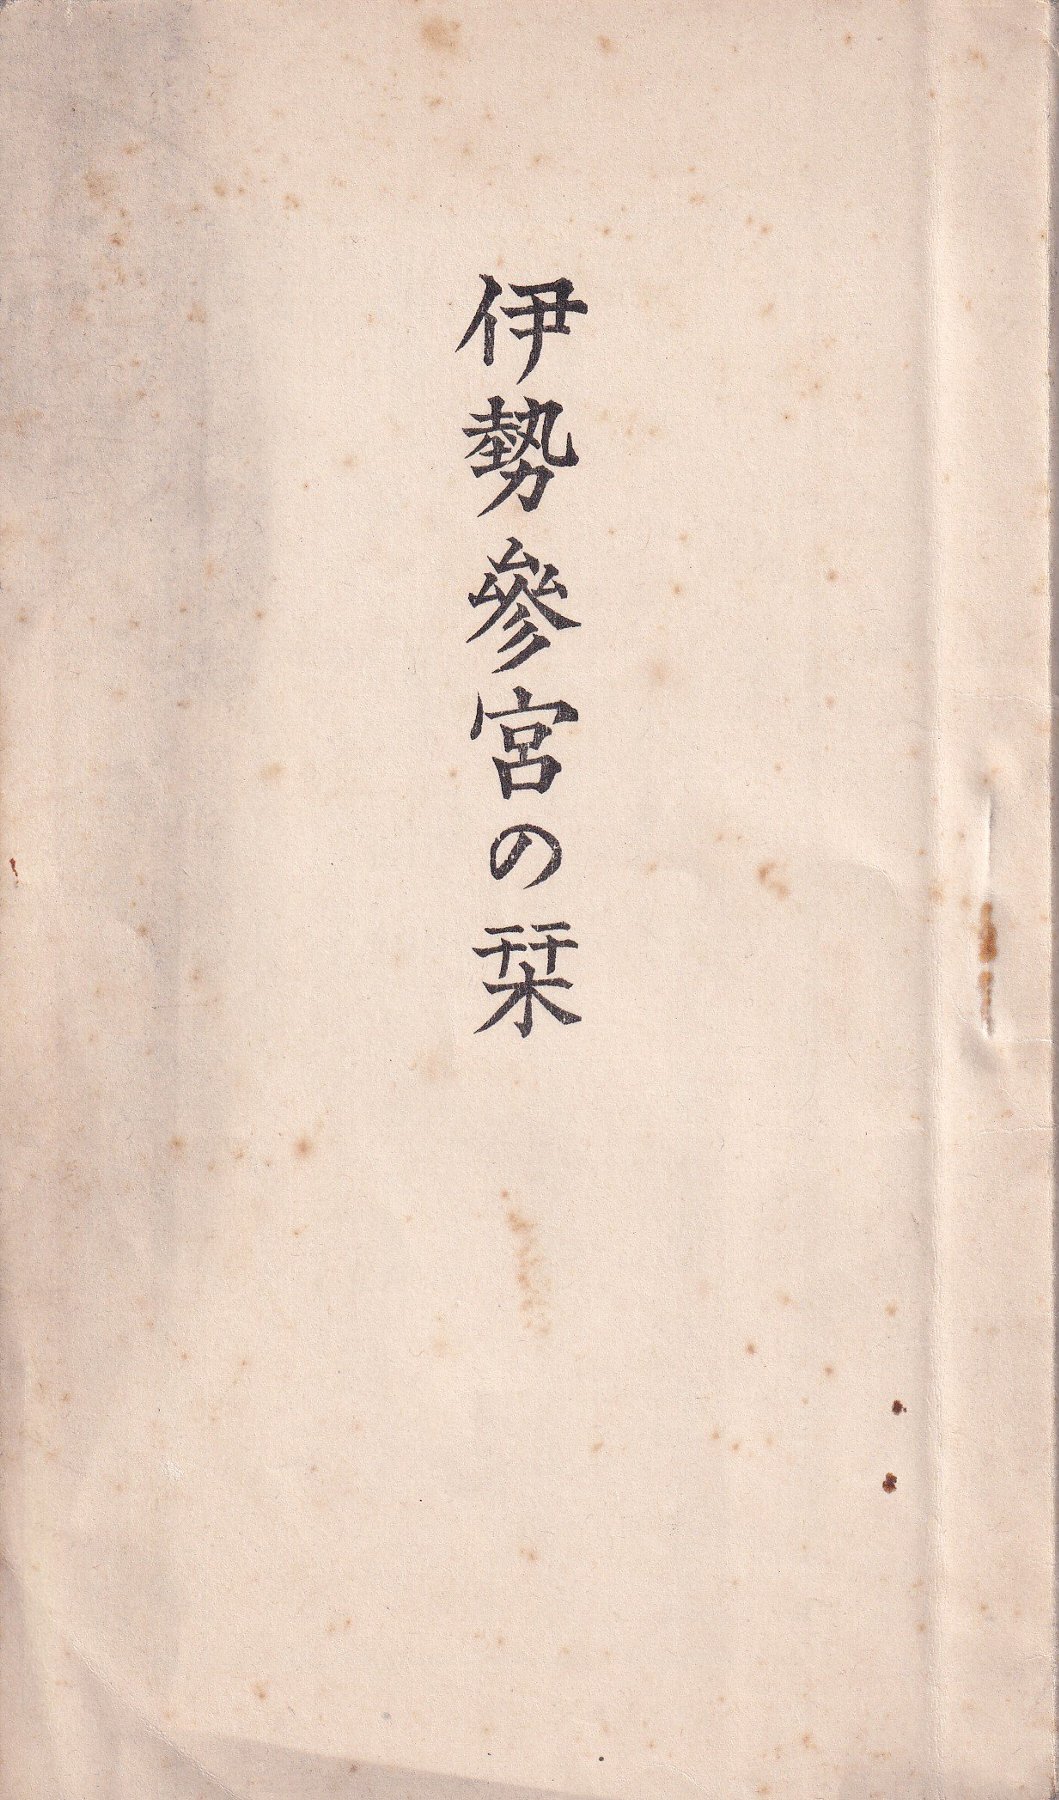 伊勢參宮の栞